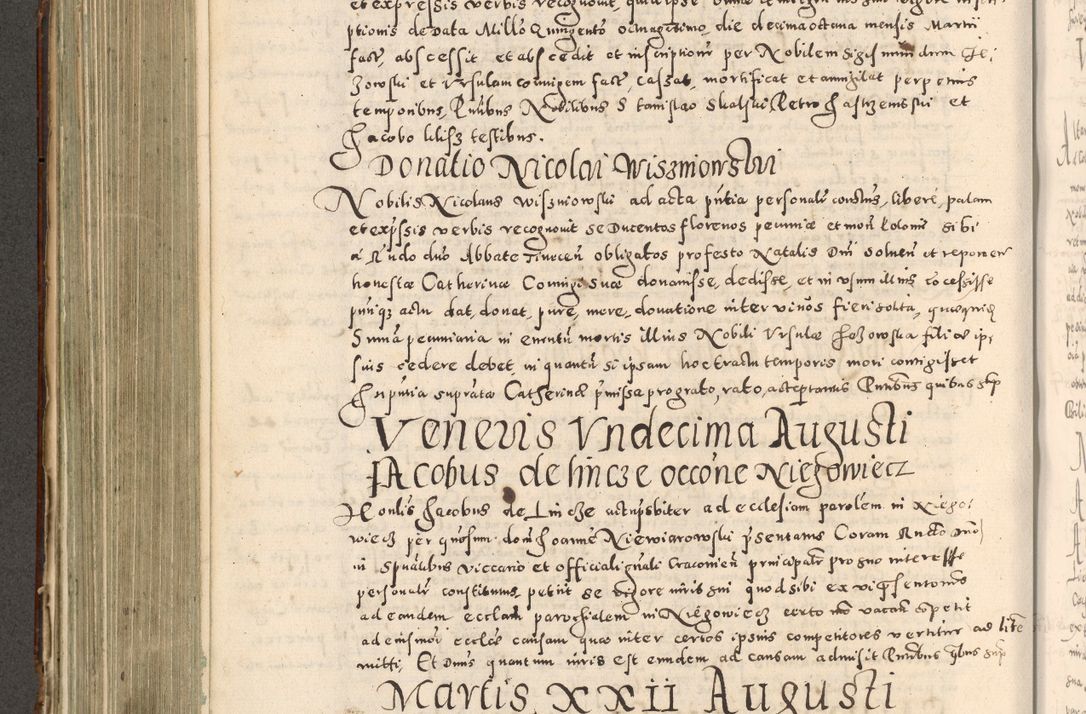 et expressis verbis recognovit, quia ipse
ptionis de data Millo Quingento octuagesimo, die decima octava mensis Martii
fact, abscessit et abscedit et inscriptionem per Nobilem Sigismundum Je,
zowski et Ursulam coniugem fact, cassat, mortificat et annihilat perpetuis
temporibus, Pntibus Nobilibus Stanislao Skalski, Petro Jastrzemski et
Jacobo testibus.
Donatio Nicolai Wiszniowski
Nobilis Nicolaus Wiszniowski ad acta pntia personalr constus, libere, palam
et expssis verbis recognovit se Ducentos florenos pecuniæ et mon Poloniæ sibi
a Rndo dno Abbate Tinecen obligatos pro festo Natalis Dni solven et reponen
honestæ Catherinæ Coniugi suæ donavisse, dedisse, et in usum illius concessisse
pntiqz actu dat, donat, pure, mere, donatione inter vivos fieri solita, quæquidem
Summa pecuniaria in eventu mortis illius Nobili Ursulæ Jezowska filiæ ip,
sius cedere debet, in quantu si ipsam hoc tractu temporis mori contigisset
In pntia supratæ Catherinæ pmissa pro grato, rato, acceptantis Pntibus quibus sup
Veneris Undecima Augusti
Jacobus de Lincze occone Niegowiecz
Honlis Jacobus de Lincze actus psbiter ad ecclesiam parolem in Niego,
wiecz per Gnosum dom Joannem Niewiarowski psentatus Coram Rndo dno
in spualibus viccario et officiali gnali Cracovien principalr pro suo interesse
personalr constitutus, petiit se vigore iuris sui quod sibi ex vi psentationis
ad eandem ecclam parochialem in Niegowiecz certo modo vacan competit
ad eiusmoi eccles causam quæ inter certos ipsius competitores vertitur ad litem
mitti, Et Dnus quantum iuris est eundem ad causam admisit Pntibus qbus sup
Martis XXII Augusti